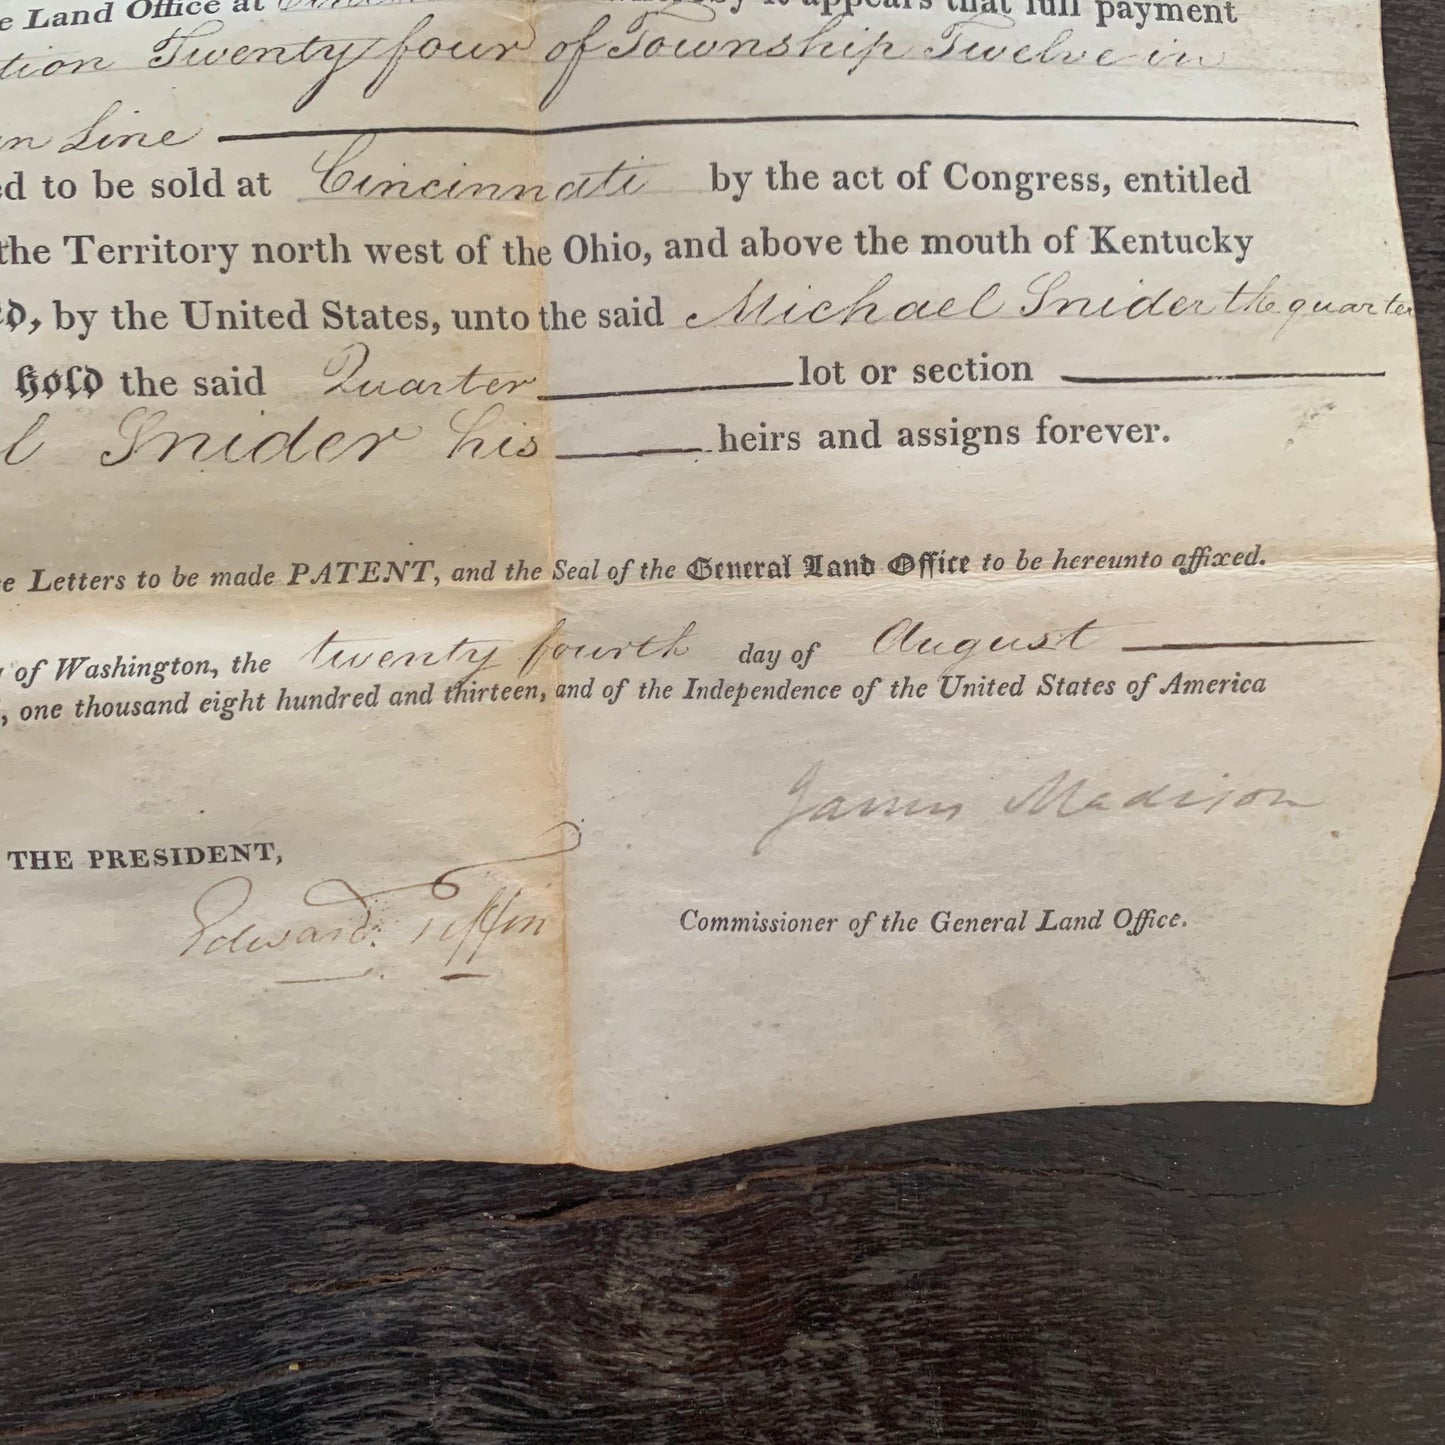 e Land Office at Cincinnati whereby it appears that full payment
tion Twenty four of Township Twelve in
an Line
ed to be sold at Cincinnati by the act of Congress, entitled
the Territory north west of the Ohio, and above the mouth of Kentucky
ed, by the United States, unto the said Michael Snider the quarter
hold the said Quarter lot or section
l Snider his heirs and assigns forever.
e Letters to be made PATENT, and the Seal of the General Land Office to be hereunto affixed.
y of Washington, the twenty fourth day of August
, one thousand eight hundred and thirteen, and of the Independence of the United States of America
James Madison
THE PRESIDENT,
Edward Tiffin
Commissioner of the General Land Office.